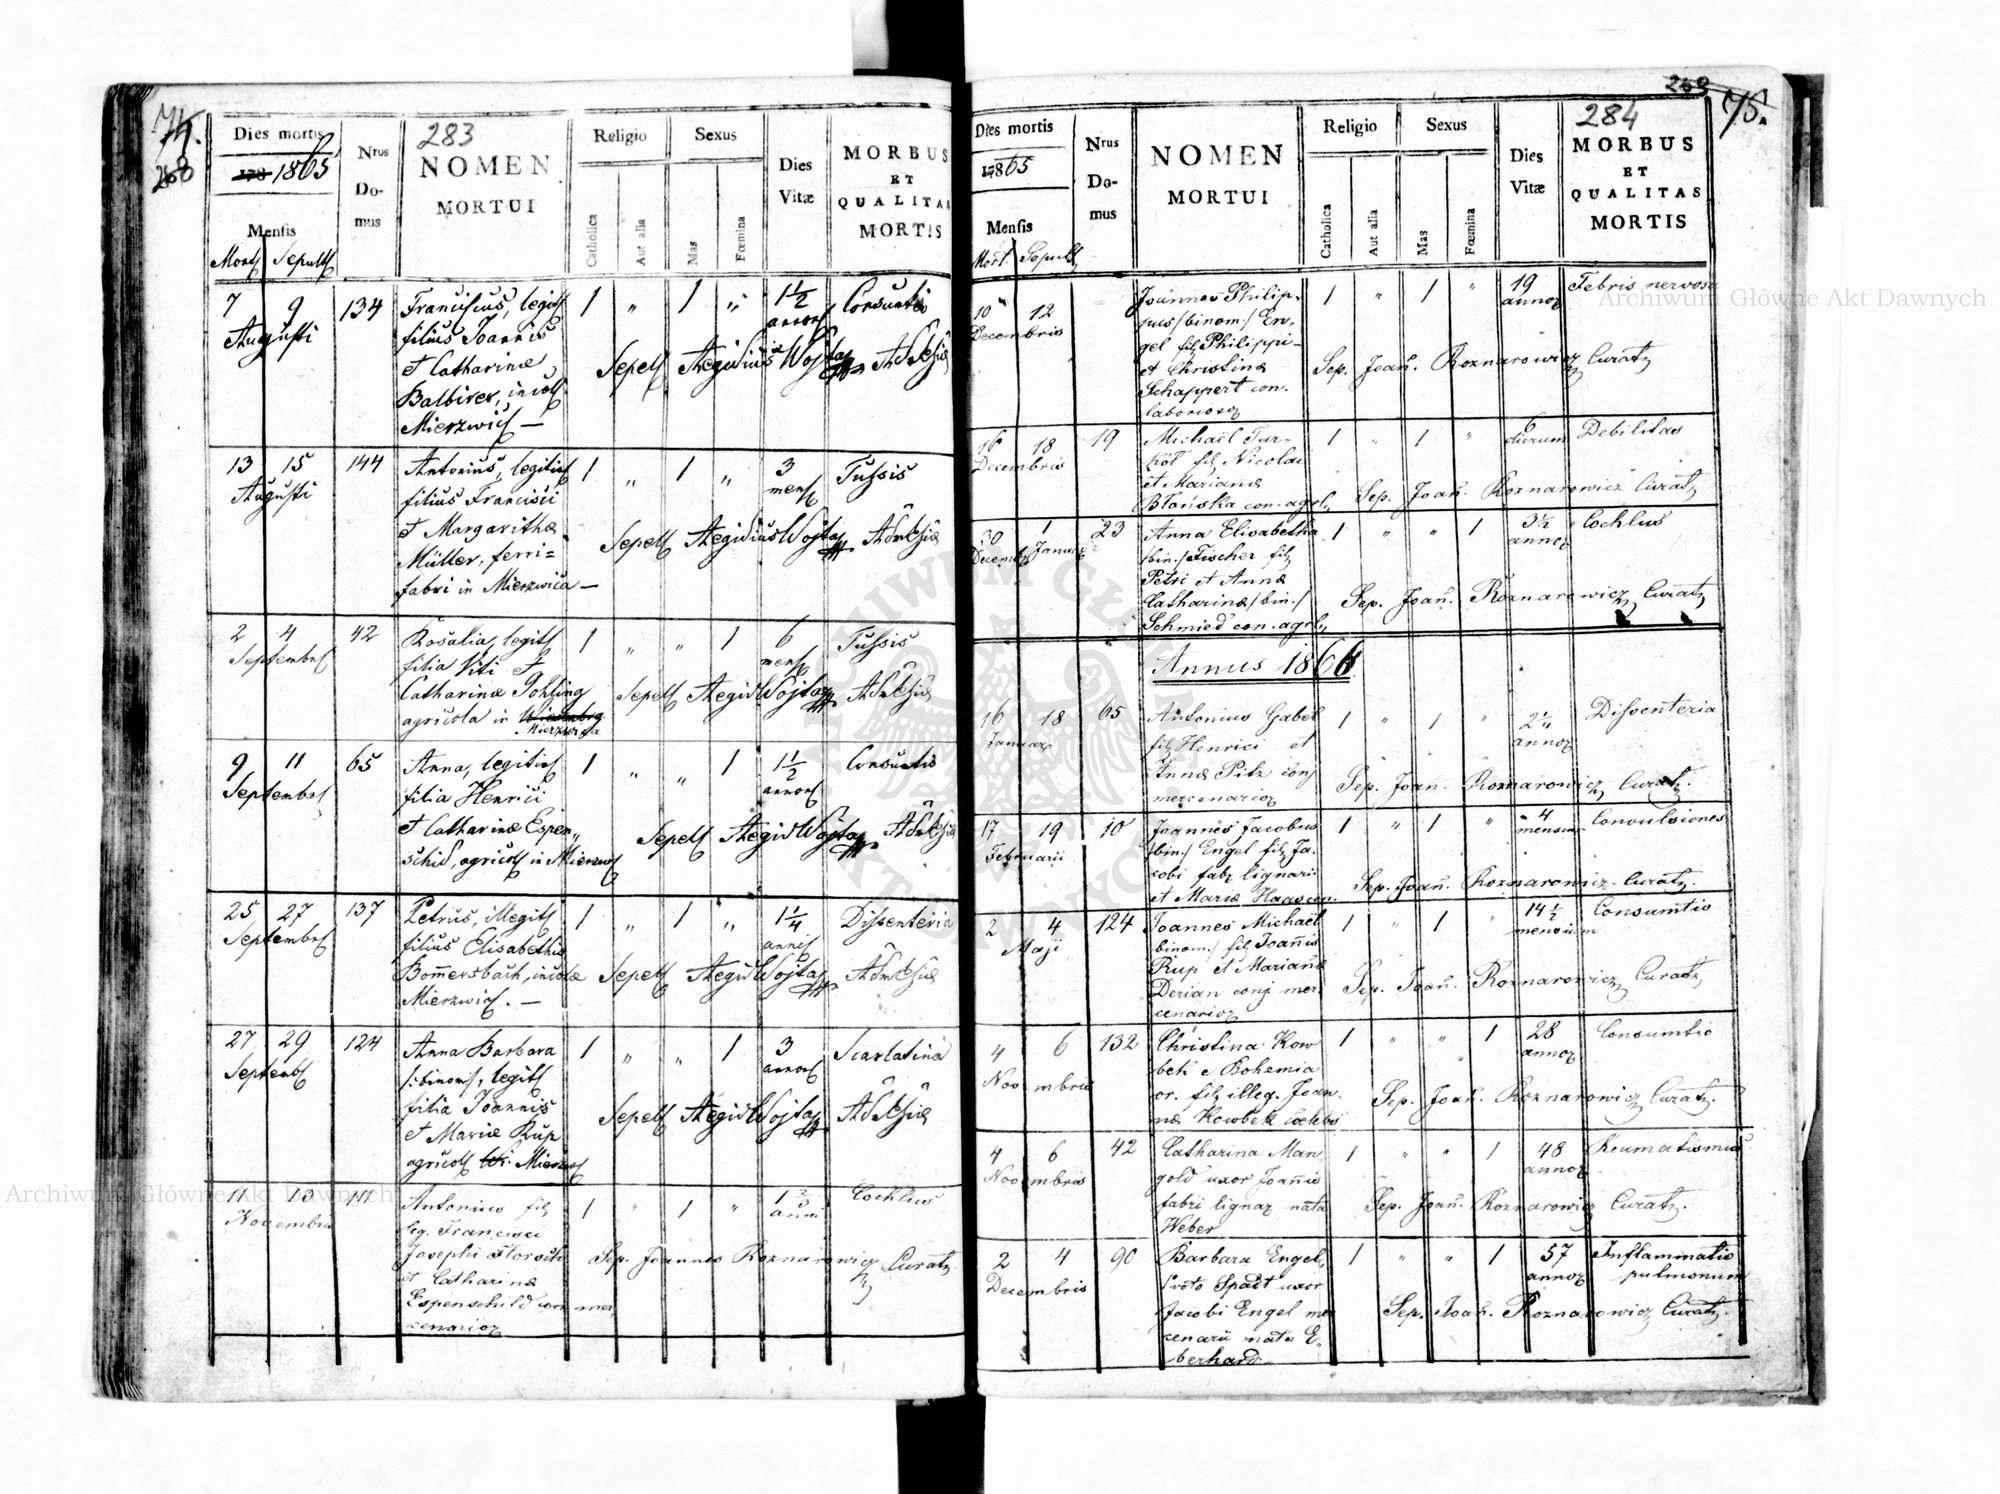 74.
268
283
Dies mortis
178 1865
Mensis
Mort Sepult
Nrus
Do-
mus
NOMEN
MORTUI
Religio
Catholica
Aut alia
Sexus
Mas
Fœmina
Dies
Vitæ
MORBUS
ET
QUALITAS
MORTIS
7 9
Augusti
134
Franciscus, legit
filius Joannis
et Catharinæ
Balbirer, incol
Mierzwic —
1 " 1 "
1 1/2
annor
Consumtio
Sepell Aegidius Wojtas
13 15
Augusti
144
Antonius, legitim
filius Francisci
et Margarithæ
Müller, ferri-
fabri in Mierzwica —
1 " 1 "
3
mens
Tussis
Sepell Aegidius Wojtas
2 4
Septembr
42
Rosalia, legit
filia Viti et
Catharinæ Pohling
agricola in
Mierzwica
1 " " 1
6
mens
Tussis
Sepell Aegid Wojtas
9 11
Septembr
65
Anna, legitim
filia Henrici
et Catharinæ Espen„
schid, agricol in Mierzwic
1 " " 1
1 1/2
annor
Consumtio
Sepell Aegid Wojtas
25 27
Septembr
137
Petrus, illegit
filius Elisabethæ
Bom̄ersbach, incolæ
Mierzwic. —
1 " 1 "
1 1/4
annis
Dissenteria
Sepell Aegid Wojtas
27 29
Septemb
124
Anna Barbara
/:binom/, legit
filia Joannis
et Mariæ Rup
agricol Mierzwic
1 " " 1
3
annor
Scarlatina
Sepell Aegid Wojtas
11 13
Novembris
Antonius fil
leg. Francisci
Josephi
et Catharinæ
Espenschild con mer
cenarior
1 " 1 "
1 2/3
anni
Cochlus
Sep. Joannes Roznarowicz Curat
269
75.
284
Dies mortis
1865
Mensis
Mort. Sepult
Nrus
Do-
mus
NOMEN
MORTUI
Religio
Catholica
Aut alia
Sexus
Mas
Fœmina
Dies
Vitæ
MORBUS
ET
QUALITAS
MORTIS
10 12
Decembris
Joannes Philip-
pus /binom/ En-
gel fil Philippi
et Christinæ
Schappert con.
laborioso
1 " 1 "
19
annor
Febris nervosa
Sep. Joan̄. Roznarowicz Curat
16 18
Decembris
19
Michaël Tur-
kôt fil Nicolai
et Marianæ
Błońska con. agrl„
1 " 1 "
6
dierum
Debilitas
Sep. Joan̄. Roznarowicz Curat
30 1
Decemb Januar
23
Anna Elisabetha
/bin./ Fischer fil
Petri et Annæ
Catharinæ /bin./
Schmied con. agrl„
1 " " 1
3 1/2
annor
Cochlus
Sep. Joan̄. Roznarowicz Curat
Annus 1866
16 18
Januar
65
Antonius Gabel
fil Henrici et
Annæ Pitz conj
mercenarior
1 " 1 "
annor
Dissenteria
Sep. Joan̄. Roznarowicz Curat.
17 19
Februarii
10
Joannes Jacobus
/bin./ Engel fil Ja-
cobi fabr lignari
et Mariæ Haas con.
1 " 1 "
4
mensium
Convulsiones
Sep. Joan̄. Roznarowicz Curat.
2 4
Maji
124
Joannes Michaël
binom./ fil Joan̄is
Rup et Marianæ
Derian conj mer
cenarior
1 " 1 "
14 1/2
mensium
Consumtio
Sep. Joan̄. Roznarowicz Curat
4 6
Novembris
132
Christina Kow
bek e Bohemia
or. fil illeg. Joan-
næ Kowbek cœlebs
1 " " 1
28
annor
Consumtio
Sep. Joan̄. Roznarowicz Curat.
4 6
Novembris
42
Catharina Man
gold uxor Joan̄is
fabri lignar nata
Weber
1 " " 1
48
annor
Reumatismus
Sep. Joan̄. Roznarowicz Curat.
2 4
Decembris
90
Barbara Engel,
1voto Spadt uxor
Jacobi Engel mer
cenarii nata E-
berhard
1 " " 1
57
annor
Inflammatio
pulmonum
Sep. Joan̄. Roznarowicz Curat.
Archiwum Główne Akt Dawnych
Archiwum Główne Akt Dawnych